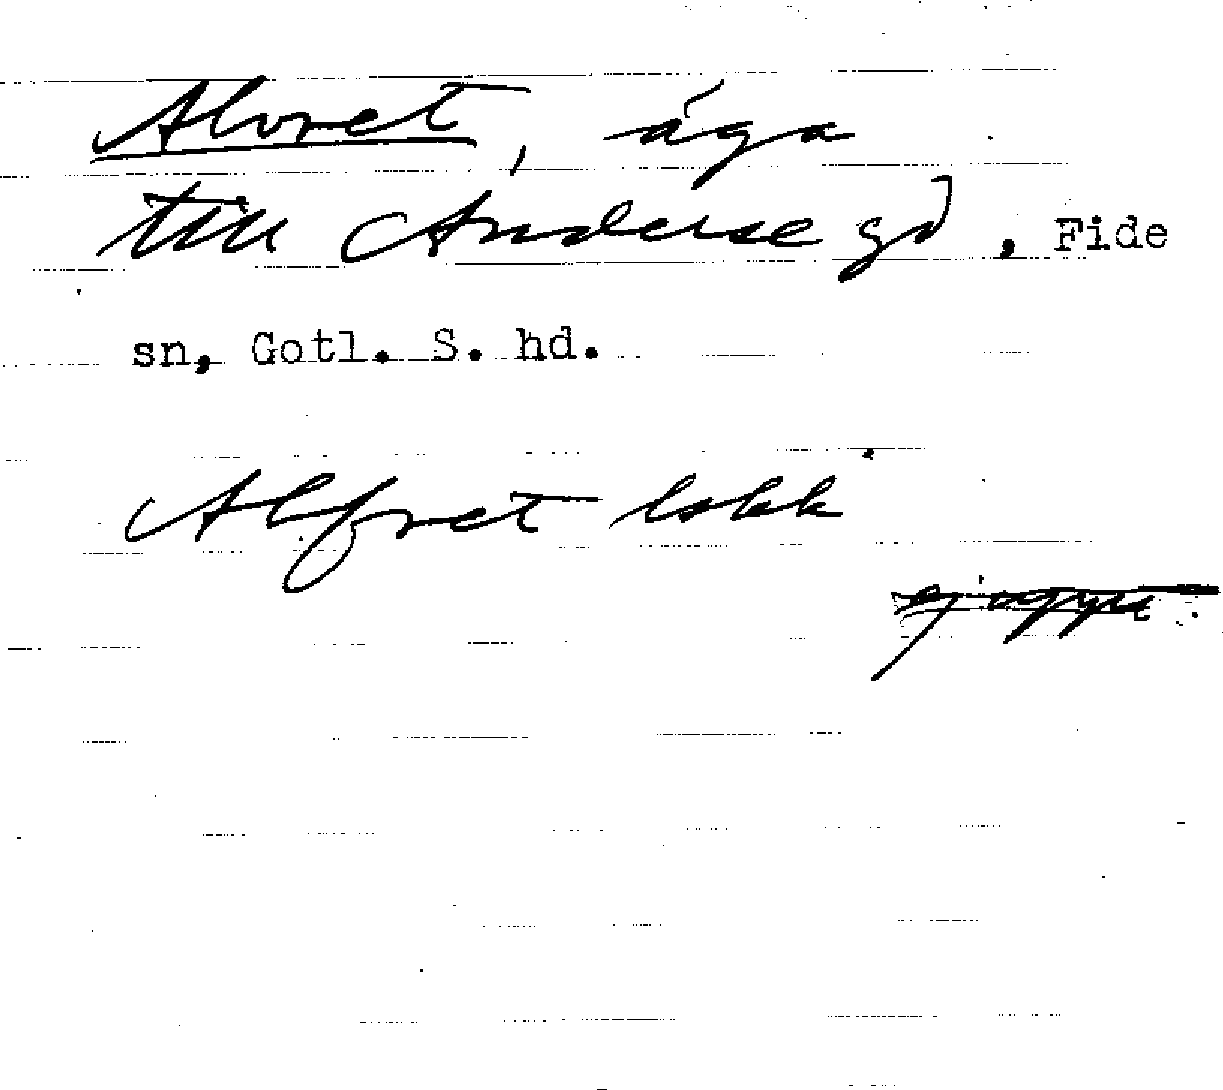 Alvret, äga
till Anderse gd, Fide
sn, Gotl. S. hd.
Alfret lskk
ej uppt.